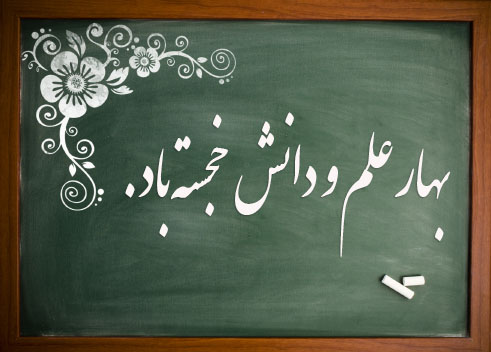 بهار علم و دانش خجسته باد.